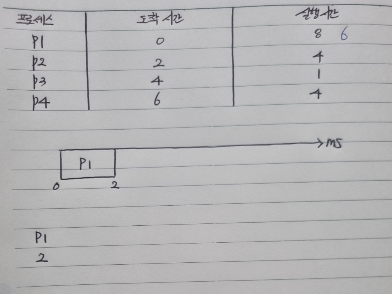 프로세스 도착 시간 실행시간
P1 0 8 6
P2 2 4
P3 4 1
P4 6 4
P1 ms
0 2
P1
2